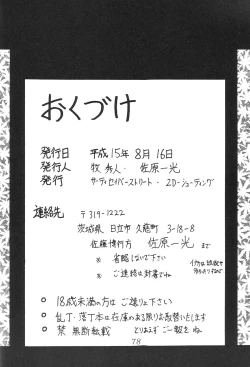 おくづけ
発行日 平成15年 8月 16日
発行人 牧 秀人・佐原一光
発行 サーティセイバーストリート・2D-シューティング
連絡先 〒319-1222
茨城県 日立市 久慈町 3-18-8
佐藤博行方 佐原一光 まで
※ 省略しないで下さい
※ ご連絡は封書でね
○ 18歳未満の方は ご遠り下さい
○ 乱丁・落丁本は在庫のある限りお取替いたします
○ 禁 無断転載 とりあえず ご一報を ね
78